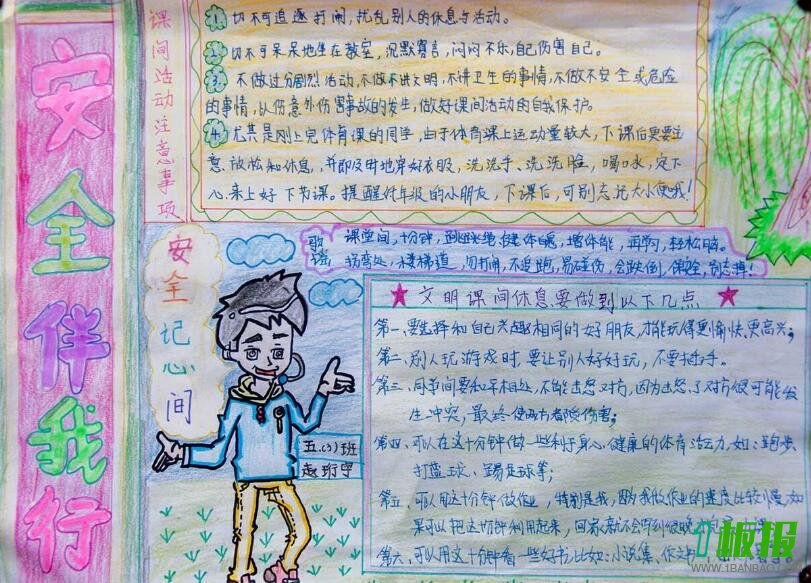 安全伴我行
课间活动注意事项
1、切不可追逐打闹，扰乱别人的休息与活动。
2、切不可呆呆地坐在教室，沉默寡言，闷闷不乐，自己伤害自己。
3、不做过分剧烈活动，不做不讲文明，不讲卫生的事情，不做不安全或危险
的事情，以伤意外伤害事故的发生，做好课间活动的自我保护。
4、尤其是刚上完体育课的同学，由于体育课上运动量较大，下课后更要注
意放松和休息，并即及时地穿好衣服，洗洗手、洗洗脸，喝口水，定下
心来上好下节课。提醒低年级的小朋友，下课后，可别忘记大小便哦！
歌谣
课堂间，十分钟，跳跳绳，健体魄，增体能，再学习，轻松哦。
拐弯处，楼梯道，勿打闹，不追跑，易碰伤，会跌倒，保险，别忘掉！
安全记心间
五.(5)班
赵珩宇
文明课间休息要做到以下几点
第一、要选择和自己兴趣相同的好朋友，才能玩得更愉快、更高兴；
第二、别人玩游戏时，要让别人好好玩，不要插手。
第三、同学间要和平相处，不能惹怒对方，因为惹怒了对方便可能发
生冲突，最终使两方者险伤害；
第四、可以在这十分钟做一些利于身心健康的体育活动，如：跑步、
打篮球、踢足球等；
第五、可以用这十分钟做作业，特别是我，因为我做作业的速度比较慢，如
果可以把这十分钟利用起来，回家就不会
第六、可以用这十分钟看一些好书，比如：小说集、作文书
板报
WWW.1BANBAO.COM